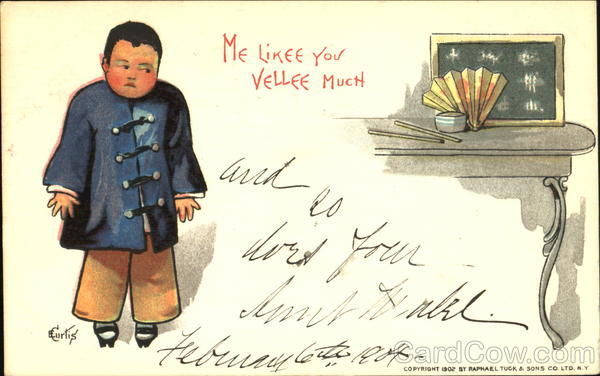 Me Likee You
Vellee Much
and
so
does your
Aunt
February 6th 1904
Curtis
COPYRIGHT 1902 BY RAPHAEL TUCK & SONS CO. LTD. N.Y.
CardCow.com